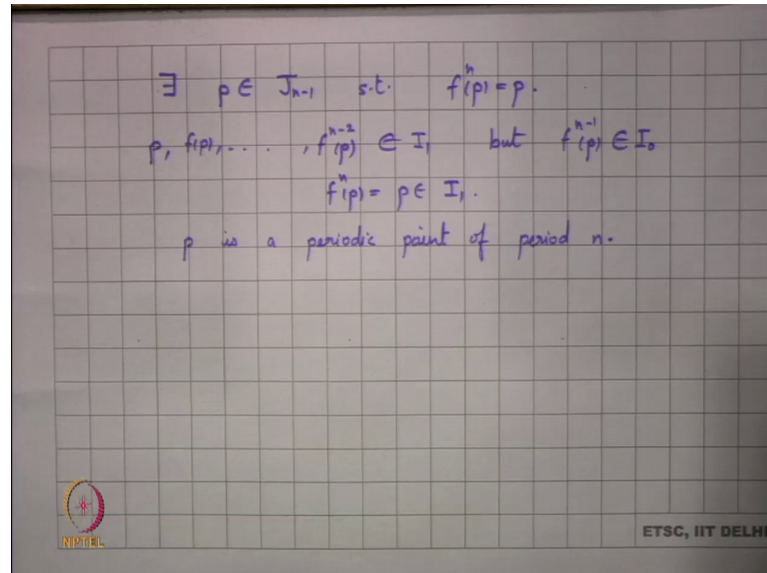 ∃ p ∈ J_{n-1} s.t. f^n(p) = p.
p, f(p), . . . . , f^{n-2}(p) ∈ I_1 but f^{n-1}(p) ∈ I_0
f^n(p) = p ∈ I_1.
p is a periodic point of period n.
NPTEL
ETSC, IIT DELHI